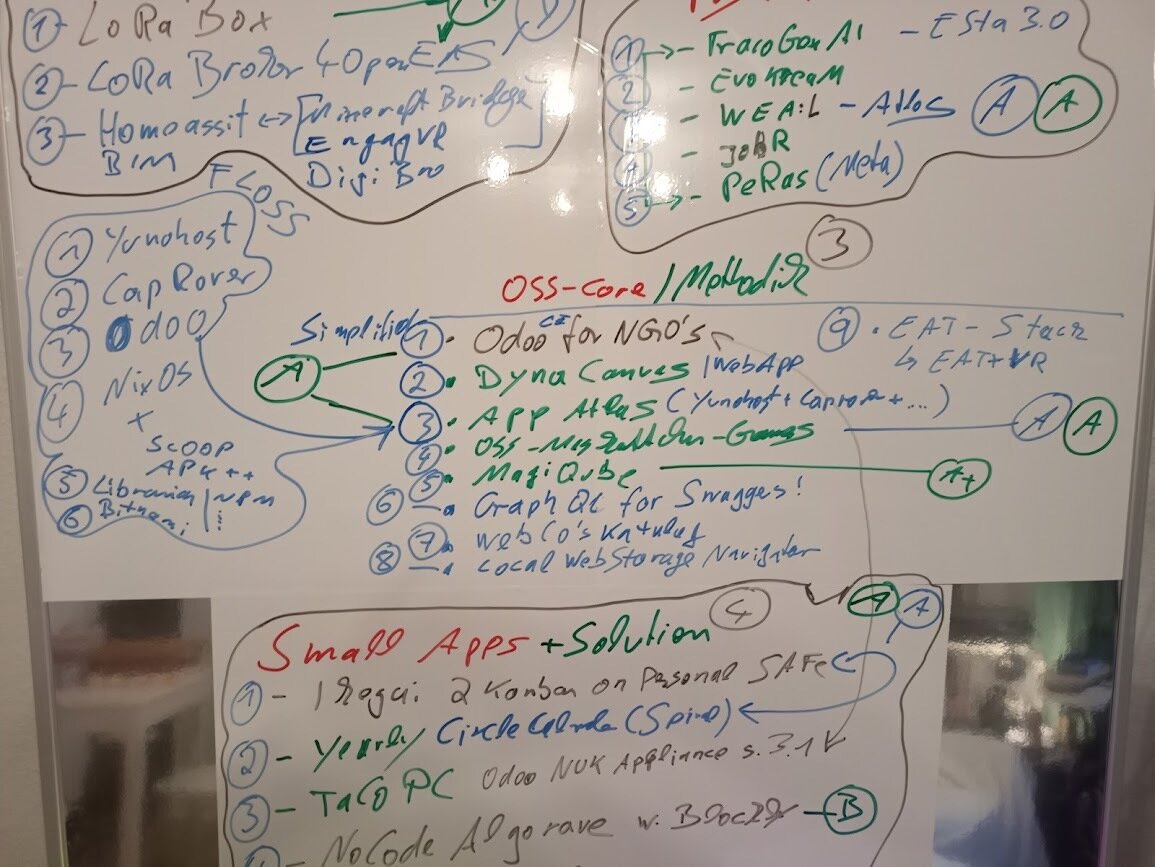 1 - LoRa Box
2 - LoRa Broker 4 OpenEMS
3 - Homoassit ↔ [Minecraft Bridge
BIM EngagVR
Digi Bro
1 → - TracoGenAI - ESta 3.0
2 - EvoKream
3 - WEA:L - Atlas A A
4 - JOBR
5 → - PeRas (Meta)
FLOSS
1 Yunohost
2 CapRover
3 Odoo
4 NixOS
+
SCOOP
APK ++
5 Libraries / NPM
6 Bitnami
3
OSS-Core / Methodik
Simplified
A
1. Odoo CE for NGO's
2. Dyna Canvas / WebApp
3. App Atlas (Yunohost + Caprover + ...)
4. OSS- A A
5. MagiQube A+
6 Graph QL for Swagges!
7. WebCo's
8 Local WebStorage Navigator
9. EAT - Stack
↳ EAT+VR
4 A A
Small Apps + Solution
1 - Kanban on Personal SAFe
2 - Yearly Circle (Spiral)
3 - TaCO PC Odoo NUK Appliance s. 3.1
4 - NoCode Algorave w. B